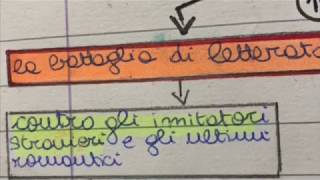 la battaglia di letterat
contro gli imitatori
stranieri e gli ultimi
romantici